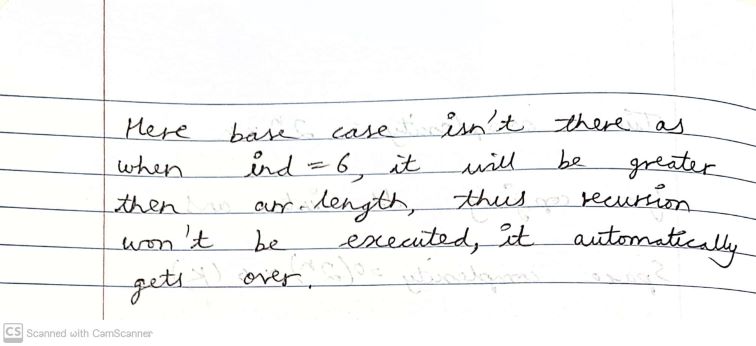 Here base case isn't there as
when ind = 6, it will be greater
then arr.length, thus recursion
won't be executed, it automatically
gets over.
CS Scanned with CamScanner